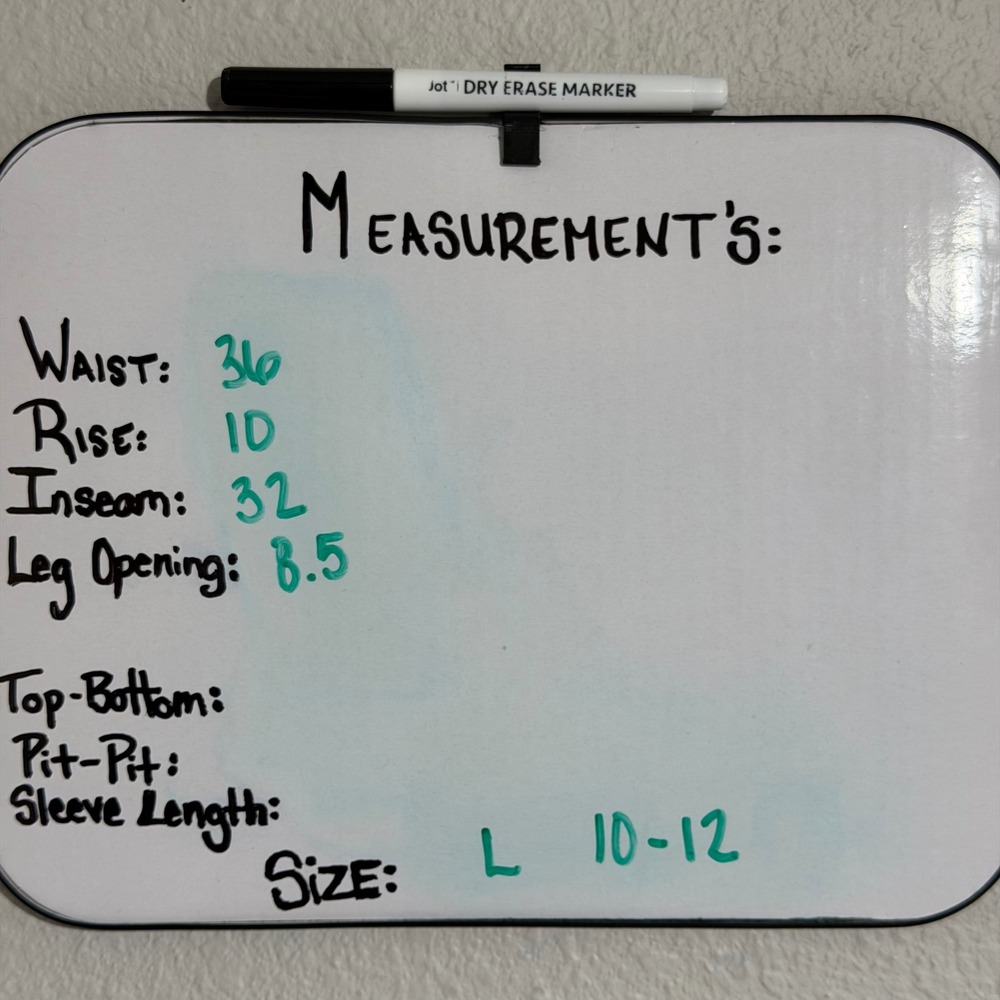 Jot™ DRY ERASE MARKER
MEASUREMENT'S:
WAIST: 36
RISE: 10
Inseam: 32
Leg Opening: 8.5
Top-Bottom:
Pit-Pit:
Sleeve Length:
SiZE: L 10-12